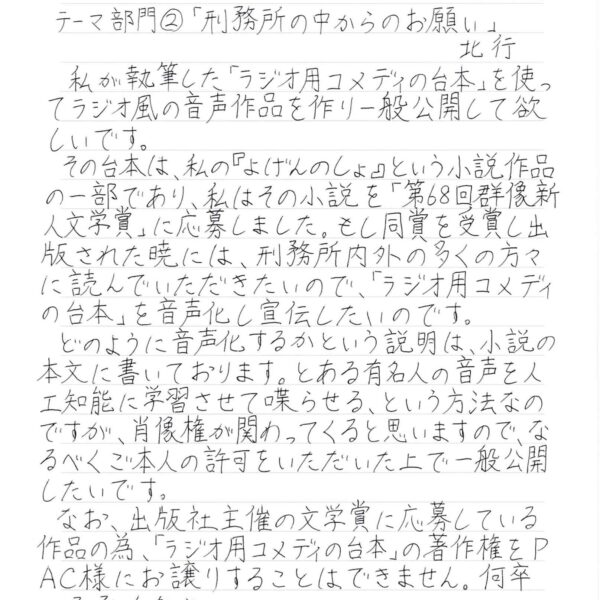 テーマ部門②「刑務所の中からのお願い」
北行
私が執筆した「ラジオ用コメディの台本」を使っ
てラジオ風の音声作品を作り一般公開して欲
しいです。
その台本は、私の『よげんのしょ』という小説作品
の一部であり、私はその小説を「第68回群像新
人文学賞」に応募しました。もし同賞を受賞し出
版された暁には、刑務所内外の多くの方々
に読んでいただきたいので、「ラジオ用コメディ
の台本」を音声化し宣伝したいのです。
どのように音声化するかという説明は、小説の
本文に書いております。とある有名人の音声を人
工知能に学習させて喋らせる、という方法なの
ですが、肖像権が関わってくると思いますので、な
るべくご本人の許可をいただいた上で一般公開
したいです。
なお、出版社主催の文学賞に応募している
作品の為、「ラジオ用コメディの台本」の著作権をP
AC様にお譲りすることはできません。何卒